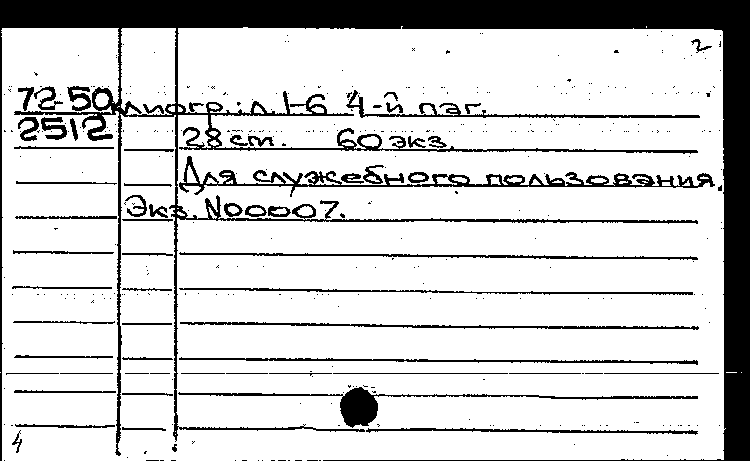 2
72-50 клиогр.: л. 1-6 4-й паг.
2512 28 см. 60 экз.
Для служебного пользования.
Экз. N00007.
4